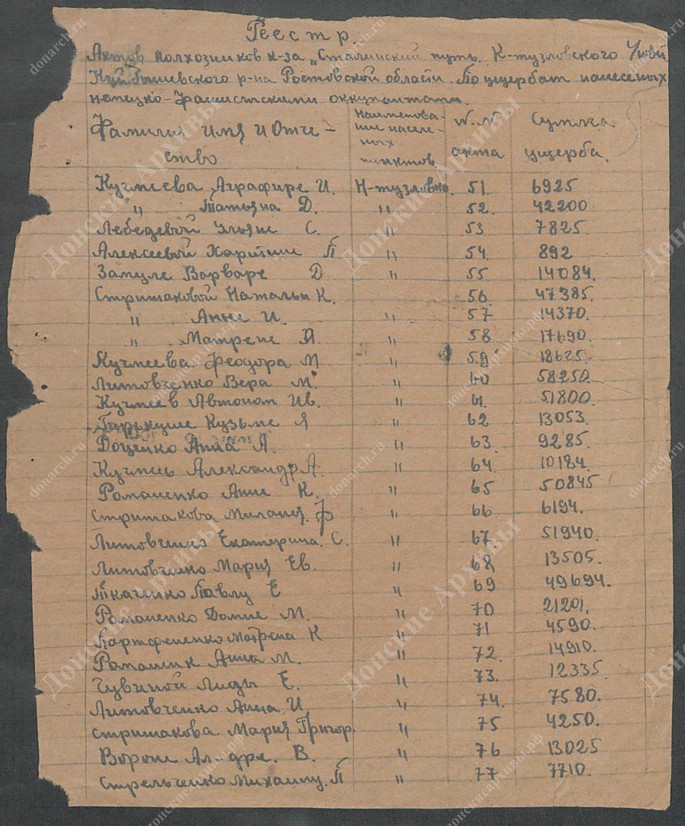 Реестр
Актов колхозников к-за „Сталинский путь" К-тузловского
Куйбышевского р-на Ростовской области. По ущербам нанесеных
немецко-фашистскими оккупантами.
Фамилия имя и Отче- Наименова- N.N Сумма
ние насел-
ство ных акта ущерба.
пунктов
Кучмеева Аграфире И. 51. 6925
" Татьяна Д. " 52. 42200
Лебедевой Ульяне С. " 53 7825
Алексеевой Харитине П " 54 892
Запуле Варваре Д " 55 14084.
Стришаковой Натальи К. 56. 47385.
" Анне И. " 57 14370.
" Матрене Й " 58 17690.
Кучмеева Феодора М " 59 18625.
Литовченко Вера М. " 60 58250.
Кучмеев Автоном Ив. " 61. 51800.
Кузьме Я " 62 13053.
Доценко Анна А. " 63. 9285.
Кучмеев Александр А. " 64. 10184.
Романенко Анне К. " 65 50845
Стришакова Миланья Ф " 66 6194.
Литовченко Екатерина С. " 67 51940.
Литовченко Мария Ев. " 68 13505.
Ткаченко Павлу Е " 69 49694.
Романенко Домне М. " 70 21201.
Партфененко Матрена К " 71 4590.
Ромашик Анна М. " 72. 14910.
Чувиной Лиды Е. " 73. 12335
Литовченко Анна И. " 74. 7580.
Стришакова Мария Григор. " 75 4250.
Ворона Ал-дре. В. " 76 13025
Стрельченко Михаилу. П " 77 7710.
Донские Архивы
donarch.ru
донскиеархивы.рф